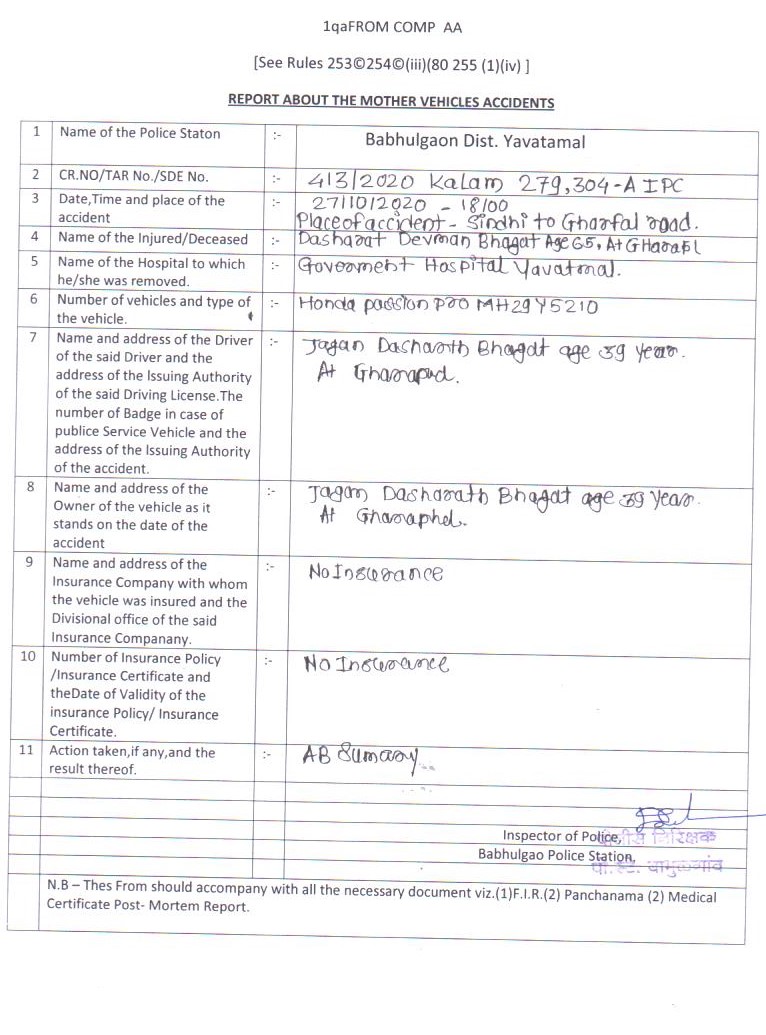 1qaFROM COMP AA
[See Rules 253©254©(iii)(80 255 (1)(iv) ]
REPORT ABOUT THE MOTHER VEHICLES ACCIDENTS
1 Name of the Police Staton :- Babhulgaon Dist. Yavatamal
2 CR.NO/TAR No./SDE No. :- 413/2020 Kalam 279,304-A IPC
3 Date,Time and place of the :- 27/10/2020 - 18/00
accident Place of accident - Sindhi to Gharfal road.
4 Name of the Injured/Deceased :- Dasharat Devman Bhagat Age 65. At GHarafl
5 Name of the Hospital to which :- Goverment Hospital Yavatmal.
he/she was removed.
6 Number of vehicles and type of :- Honda passion pro MH29Y5210
the vehicle.
7 Name and address of the Driver :- Jagan Dasharath Bhagat age 39 year.
of the said Driver and the At
address of the Issuing Authority
of the said Driving License.The
number of Badge in case of
publice Service Vehicle and the
address of the Issuing Authority
of the accident.
8 Name and address of the :- Jagan Dasharath Bhagat age 39 year.
Owner of the vehicle as it At Gharaphal.
stands on the date of the
accident
9 Name and address of the :- No Insurance
Insurance Company with whom
the vehicle was insured and the
Divisional office of the said
Insurance Companany.
10 Number of Insurance Policy :- No Insurance
/Insurance Certificate and
theDate of Validity of the
insurance Policy/ Insurance
Certificate.
11 Action taken,if any,and the :- AB Sumary
result thereof.
Inspector of Police,
पोलीस निरिक्षक
Babhulgao Police Station,
पो.स्टे. बाभुळगांव
N.B – Thes From should accompany with all the necessary document viz.(1)F.I.R.(2) Panchanama (2) Medical
Certificate Post- Mortem Report.